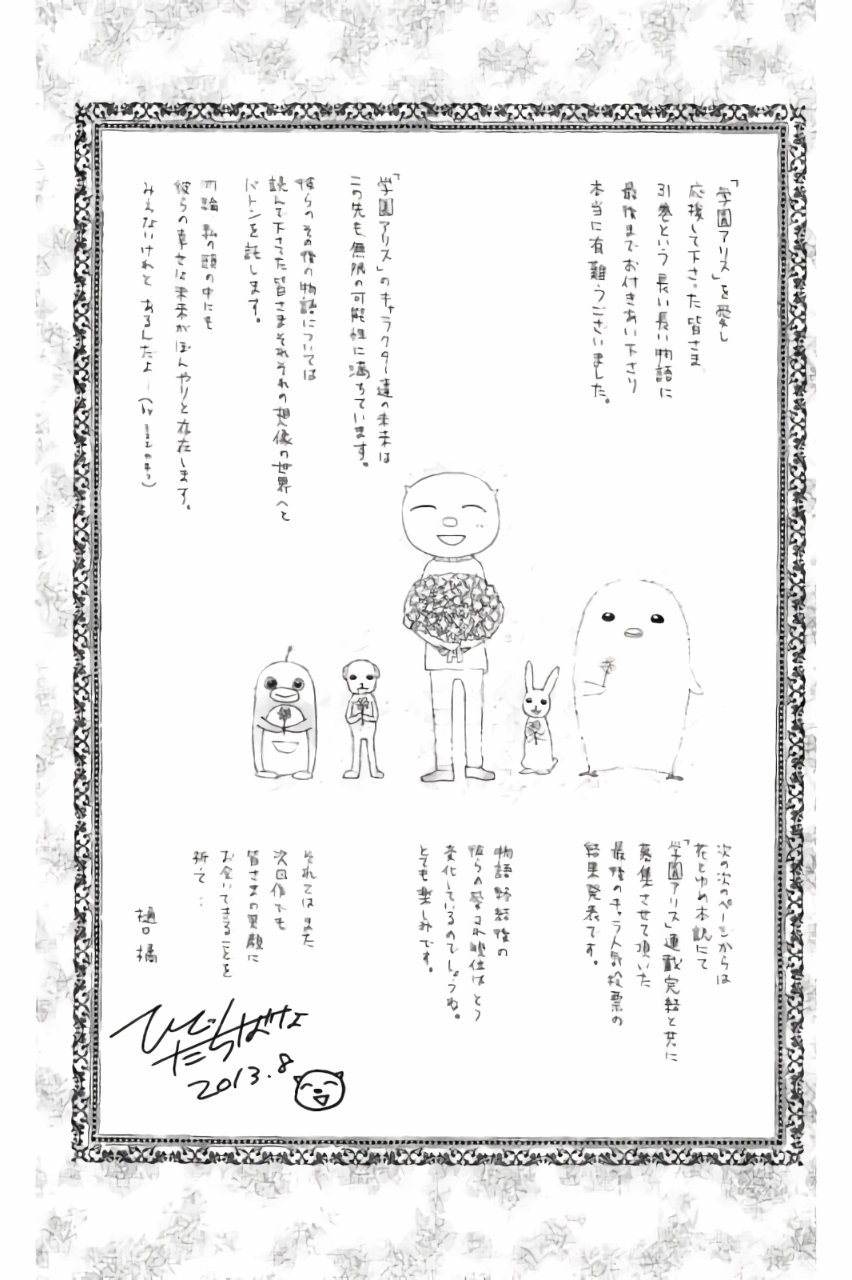 「学園アリス」を愛し
応援して下さった皆さま、
31巻という長い長い物語に
最後までお付きあい下さり
本当に有難うございました。
「学園アリス」のキャラクター達の未来は
この先も無限の可能性に満ちています。
彼らのその後の物語については
読んで下さった皆さまそれぞれの想像の世界へと
バトンを託します。
勿論 私の頭の中にも
彼らの幸せな未来がぼんやりと存在します。
みえないけれど あるんだよー(by
次の次のページからは
花とゆめ本誌にて
「学園アリス」連載完結と共に
募集させて頂いた
最後のキャラ人気投票の
結果発表です。
物語終結後の
彼らの 順位はどう
変化しているのでしょうね。
とても楽しみです。
それではまた
次回作でも
皆さまの笑顔に
お会いできることを
祈って…
樋口 橘
ひぐち
たちばな
2013.8